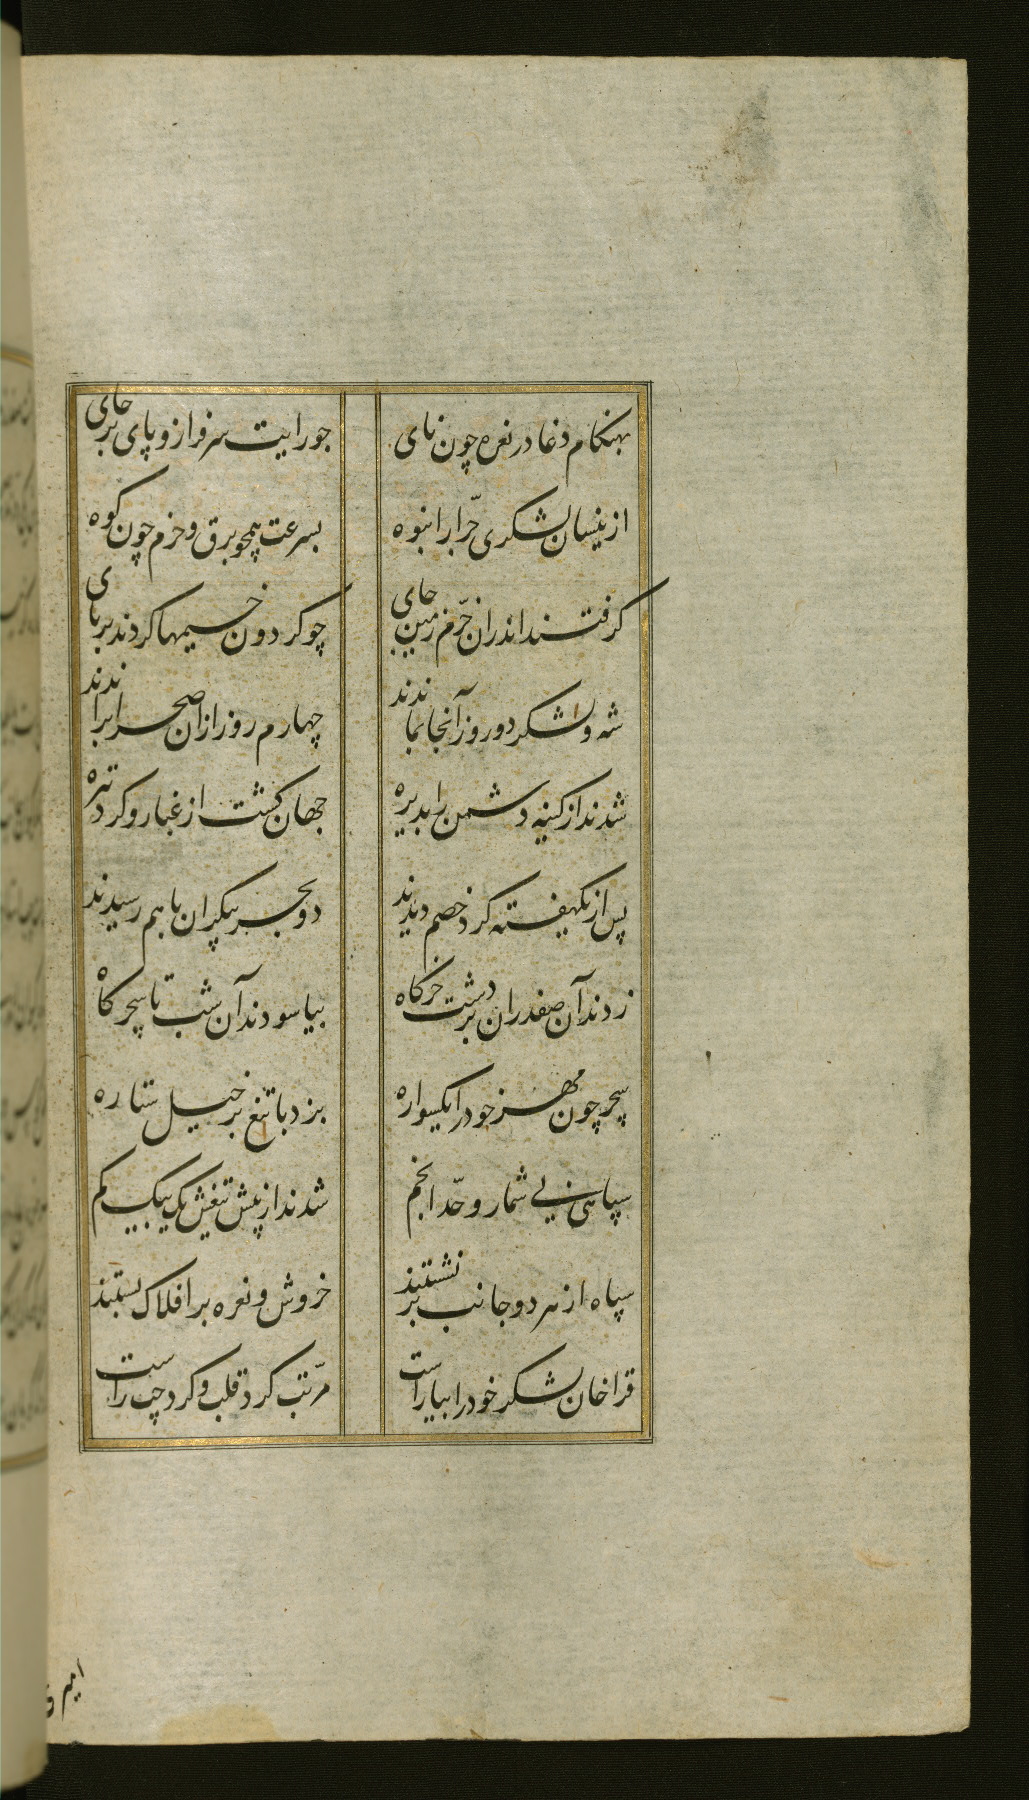 بهنکام دغا در نعره چون نای جو رایت سرفراز و پای بر جای
ازینسان لشکری جرّار انبوه بسرعت همچو برق و حزم چون کوه
کرفتند اندران خرّم زمین جای چو کردون خیمها کردند بر پای
شه و لشکر دو روز آنجا بماندند چهارم روز ازان صحرا براندند
شدند از کینه دشمن را بدیره جهان کشت از غبار و کرد تیره
پس از یکهفته کرد خصم دیدند دو بحر بیکران با هم رسیدند
زدند آن صفدران بر دشت خرکاه بیاسودند آن شب تا سحر کاه
سحر چون مهر خود را یکسواره بزد با تیغ بر خیل ستاره
سپاهی بی شمار و حدّ انجم شدند از پیش تیغش یک بیک کم
سپاه از هر دو جانب بر نشستند خروش و نعره بر افلاک بستند
قراخان لشکر خود را بیاراست مرّتب کرد قلب و کرد چپ راست
امیر